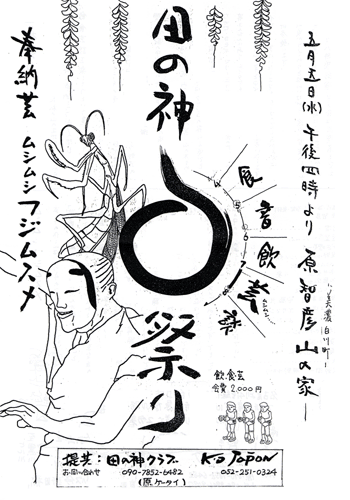 五月五日(水)午後四時より 原智彦山の家ー
美濃白川町ー
田の神
祭り
奉納芸 ムシムシフジムスメ
食 音 飲 芸
飲、食芸
会費 2,000円
提芸:田の神クラブ. K・D Japon
お問い合わせ 090-7852-6482 052-251-0324
(原ケータイ)